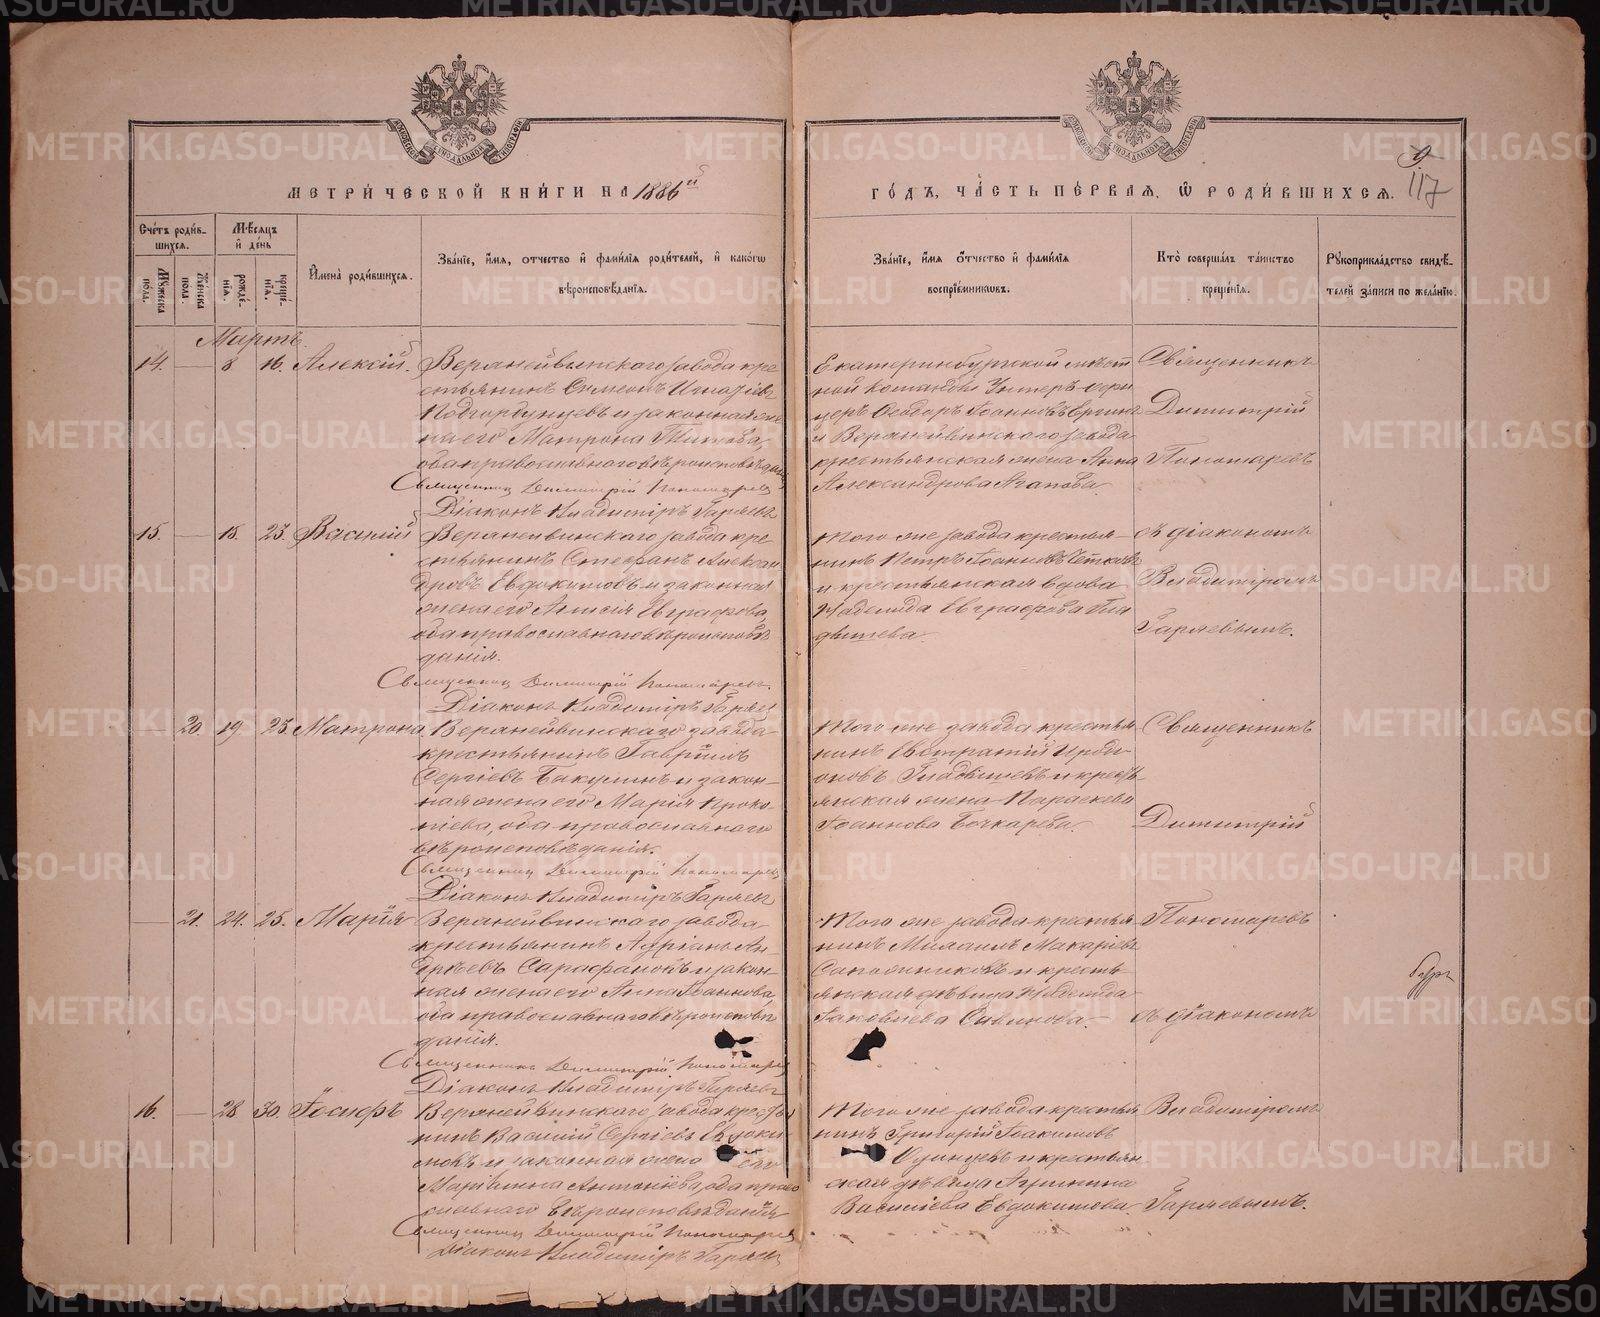 МЕТРИ́ЧЕСКОЙ КНИ́ГИ НА 1886й
ГО́ДЪ, ЧА́СТЬ ПЕ́РВАЯ, Ѽ РОДИ́ВШИХСЯ.
9
117
Сче́тъ роди́в-
шихся.
Мꙋжеска пола.
Женска пола.
Мѣ́сяцъ
и̑ де́нь
рожде́-
нїя.
креще́-
нїя.
И̑мена̀ роди́вшихся.
Зва́нїе, и̑́мя, о́тчество и̑ фами́лїя роди́телей, и̑ како́гѡ
вѣроисповѣ́данїя.
Зва́нїе, и̑́мя о́тчество и̑ фами́лїя
воспрїе́мниковъ.
Кто̀ соверша́лъ та́инство
креще́нїя.
Рꙋкоприкла́дство свидѣ́-
телей за́писи по жела́нїю.
Мартъ.
14. — 8 16. Алексій.
Верхнейвинскаго завода кре
стьянинъ Симеонъ Игнатіевъ
и законная же
на его Матрона Титова,
оба православнаго вѣроисповѣданія
Священникъ Димитрій Пономаревъ
Діаконъ Владиміръ Гаряевъ
Екатеринбургской мѣст
ной команды Унтеръ-офи
церъ Ѳеодоръ Іоанновъ
и Верхнейвинскаго завода
крестьянская жена Анна
Александрова Агапова.
Священникъ
Димитрій
Пономаревъ
15. — 15. 23. Василій
Верхнейвинскаго завода кре
стьянинъ Стефанъ Алексан
дровъ Евдокимовъ и законная
жена его Анисія Евграфова,
оба православнаго вѣроисповѣ
данія.
Священникъ Димитрій Пономаревъ.
Діаконъ Владиміръ Гаряевъ
Того же завода крестья-
нинъ Петръ Іоанновъ
и крестьянская вдова
Надежда Евграфова Гла
дышева.
съ діакономъ
Владиміромъ
Гаряевымъ.
— 20. 19. 23. Матрона
Верхнейвинскаго завода
крестьянинъ Гавріилъ
Сергіевъ Бакулинъ и закон-
ная жена его Марія Проко-
піева, оба православнаго
вѣроисповѣданія.
Священникъ Димитрій Пономаревъ
Діаконъ Владиміръ Гаряевъ
Того же завода крестья
нинъ Евстратій Иро́ди-
оновъ Гладышевъ и кресть
янская жена Параскева
Іоаннова Бочкарева.
Священникъ
Димитрій
— 21. 24. 25. Марія
Верхнейвинскаго завода
крестьянинъ Адріанъ Ан-
дреевъ Сарафановъ и закон-
ная жена его Анна Іоаннова,
оба православнаго вѣроисповѣ
данія.
Священникъ Димитрій Пономаревъ
Діаконъ Владиміръ Гаряевъ
Того же завода крестья
нинъ Михаилъ Макаріевъ
Сапожниковъ и кресть-
янская дѣвица Надежда
Іаковлева Савинова.
Пономаревъ
съ діакономъ
16. — 28 30. Іосифъ
Верхнейвинскаго завода крестья
нинъ Василій Сергіевъ Евдоки-
мовъ и законная жена его
Маріанна Антоніева, оба право
славнаго вѣроисповѣданія
Священникъ Димитрій Пономаревъ
Діаконъ Владиміръ Гаряевъ
Того же завода крестья
нинъ Григорій Іоакимовъ
Одинцевъ и крестьян
ская дѣвица Агриппина
Василіева Евдокимова.
Владиміромъ
Гаряевымъ.
METRIKI.GASO-URAL.RU